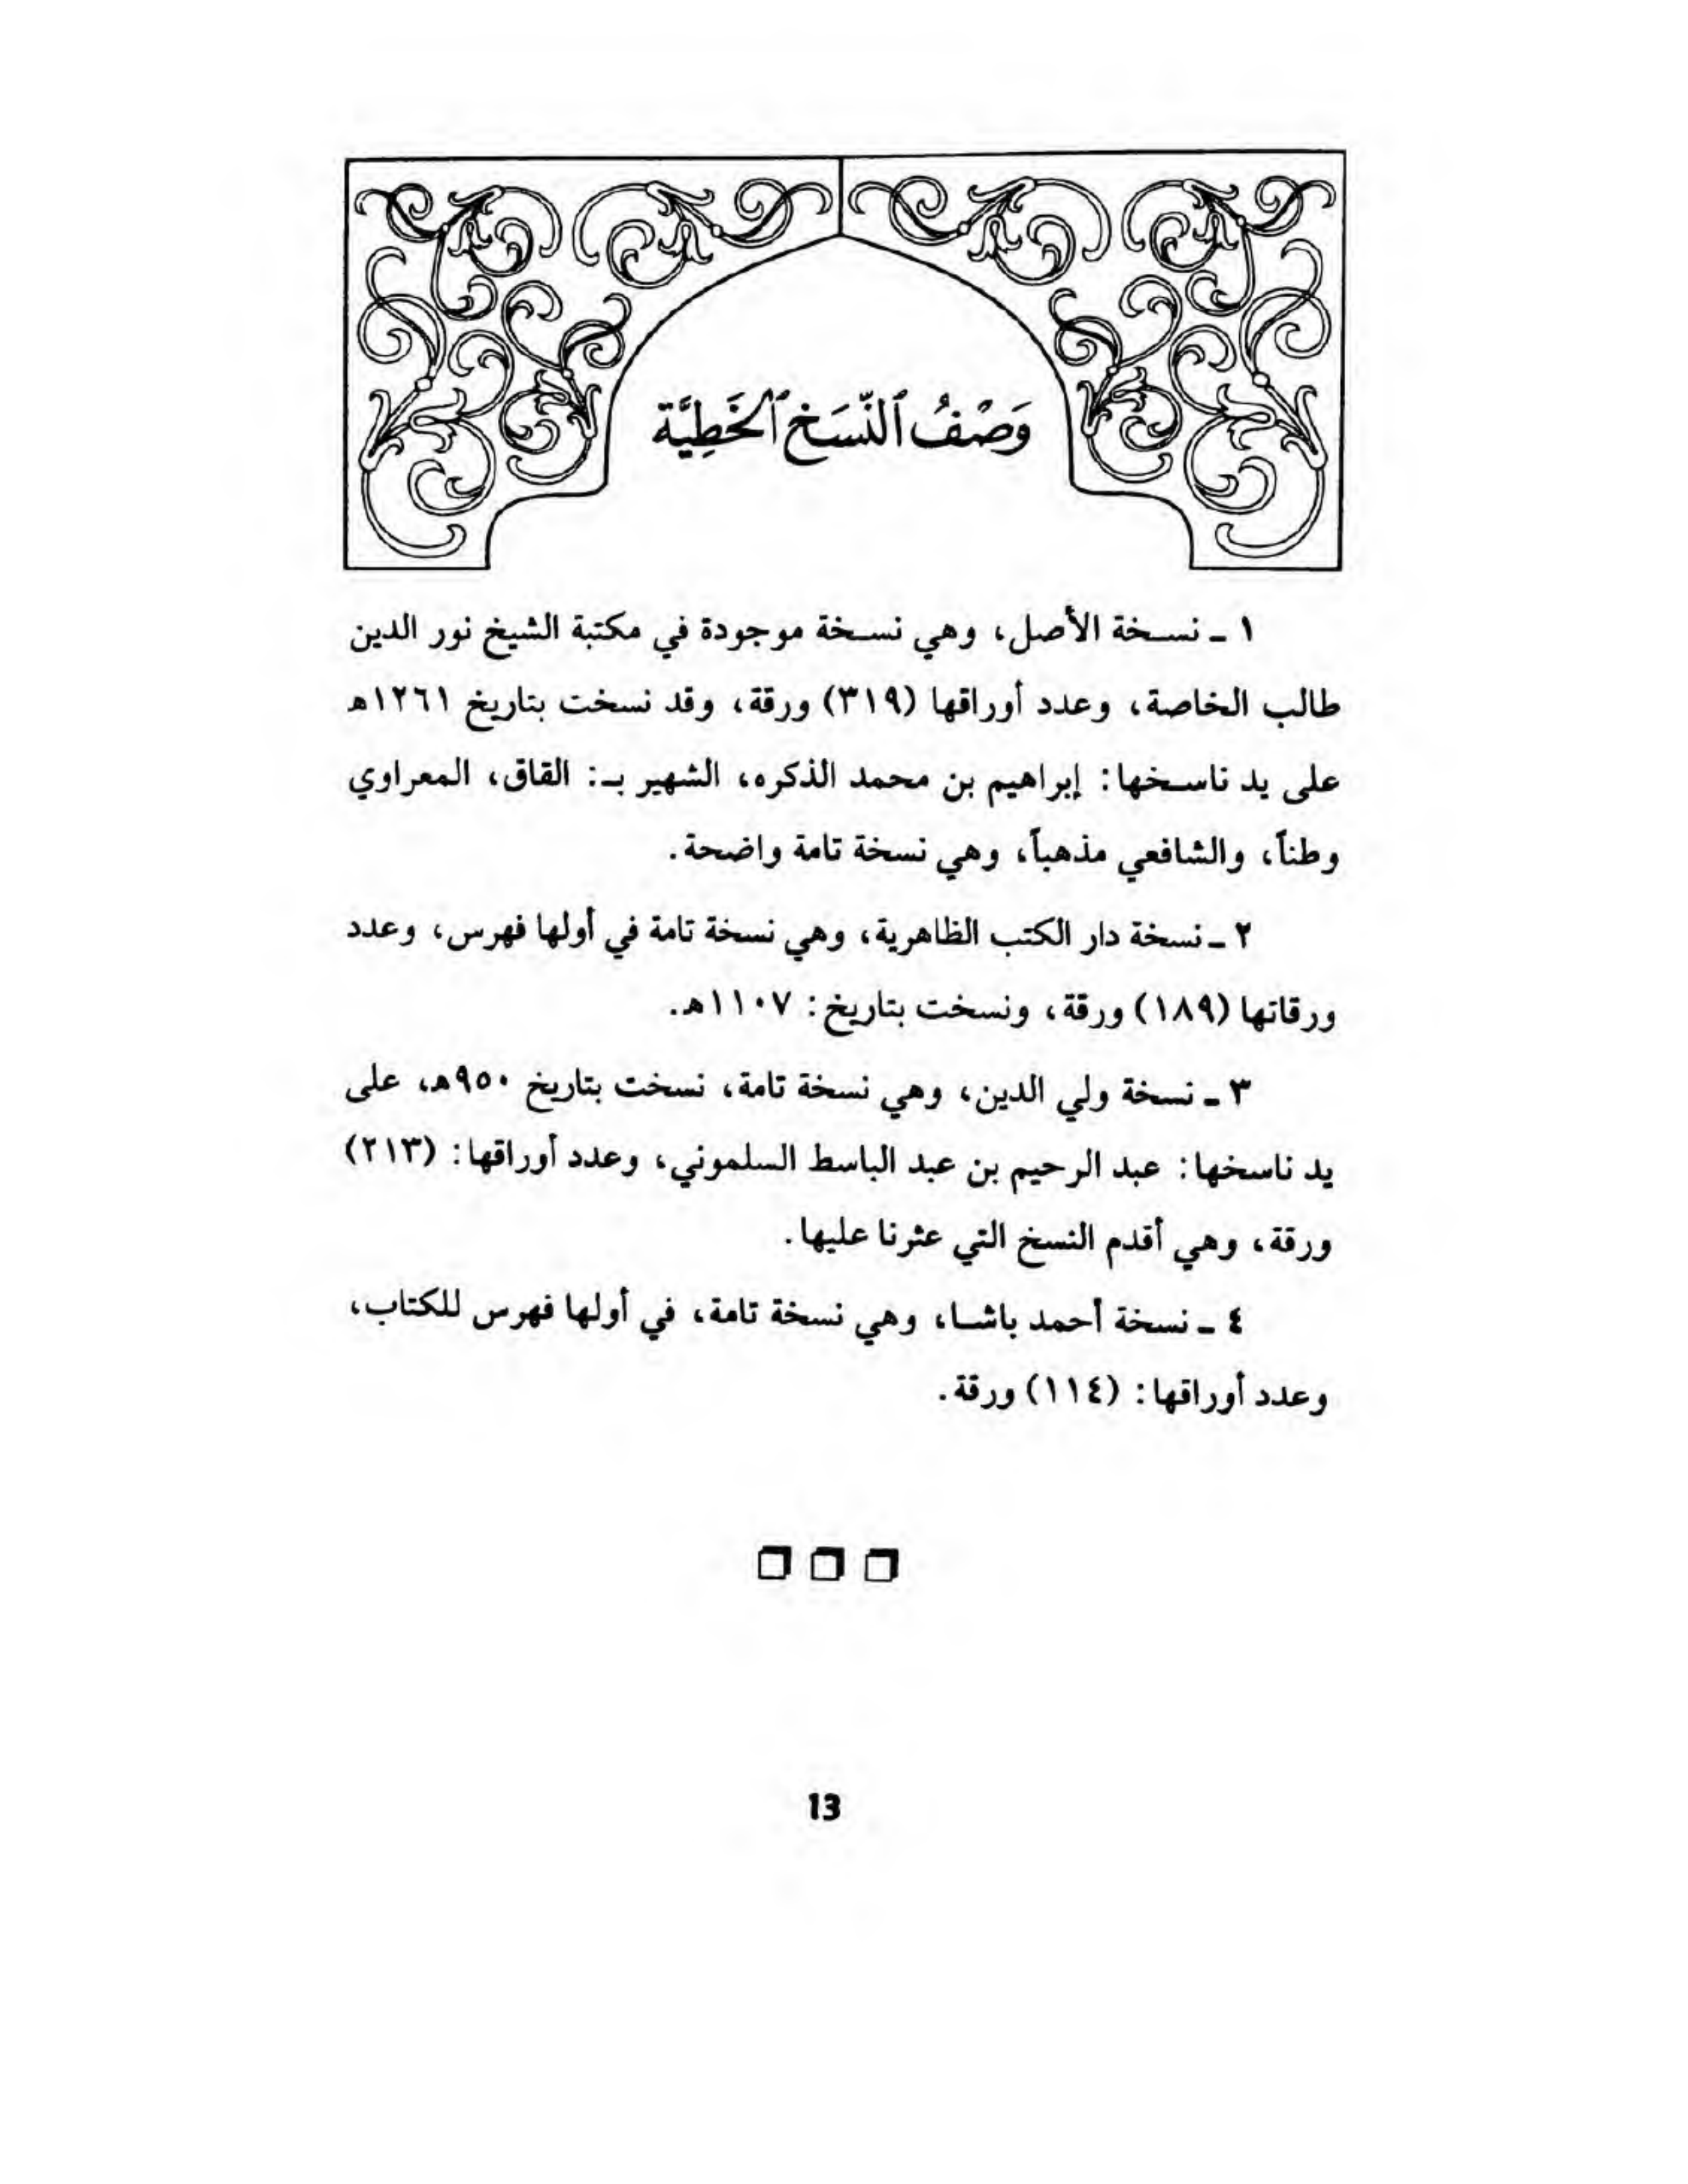 وَصْفُ ٱلنّسَخِ ٱلخَطِيَّة
١ ـ نسخة الأصل، وهي نسخة موجودة في مكتبة الشيخ نور الدين
طالب الخاصة، وعدد أوراقها (٣١٩) ورقة، وقد نسخت بتاريخ ١٢٦١هـ
على يد ناسخها: إبراهيم بن محمد الذكره، الشهير بـ: القاق، المعراوي
وطناً، والشافعي مذهباً، وهي نسخة تامة واضحة.
٢ ـ نسخة دار الكتب الظاهرية، وهي نسخة تامة في أولها فهرس، وعدد
ورقاتها (١٨٩) ورقة، ونسخت بتاريخ: ١١٠٧هـ.
٣ ـ نسخة ولي الدين، وهي نسخة تامة، نسخت بتاريخ ٩٥٠هـ، على
يد ناسخها: عبد الرحيم بن عبد الباسط السلموني، وعدد أوراقها: (٢١٣)
ورقة، وهي أقدم النسخ التي عثرنا عليها.
٤ ـ نسخة أحمد باشا، وهي نسخة تامة، في أولها فهرس للكتاب،
وعدد أوراقها: (١١٤) ورقة.
13